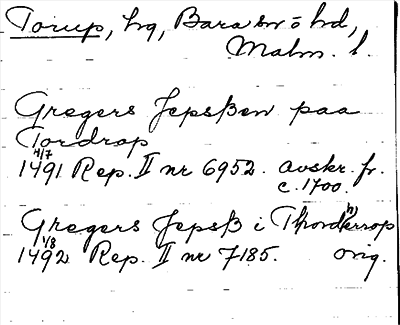 Torup, hg, Bara sn o hd,
Malm. l.
Gregers Jepsßen paa
Tordrap
4/7
1491 Rep. II nr 6952. avskr. fr.
c. 1700.
Gregers Jepsß i Thorderrop
1/8
1492 Rep. II nr 7185. orig.